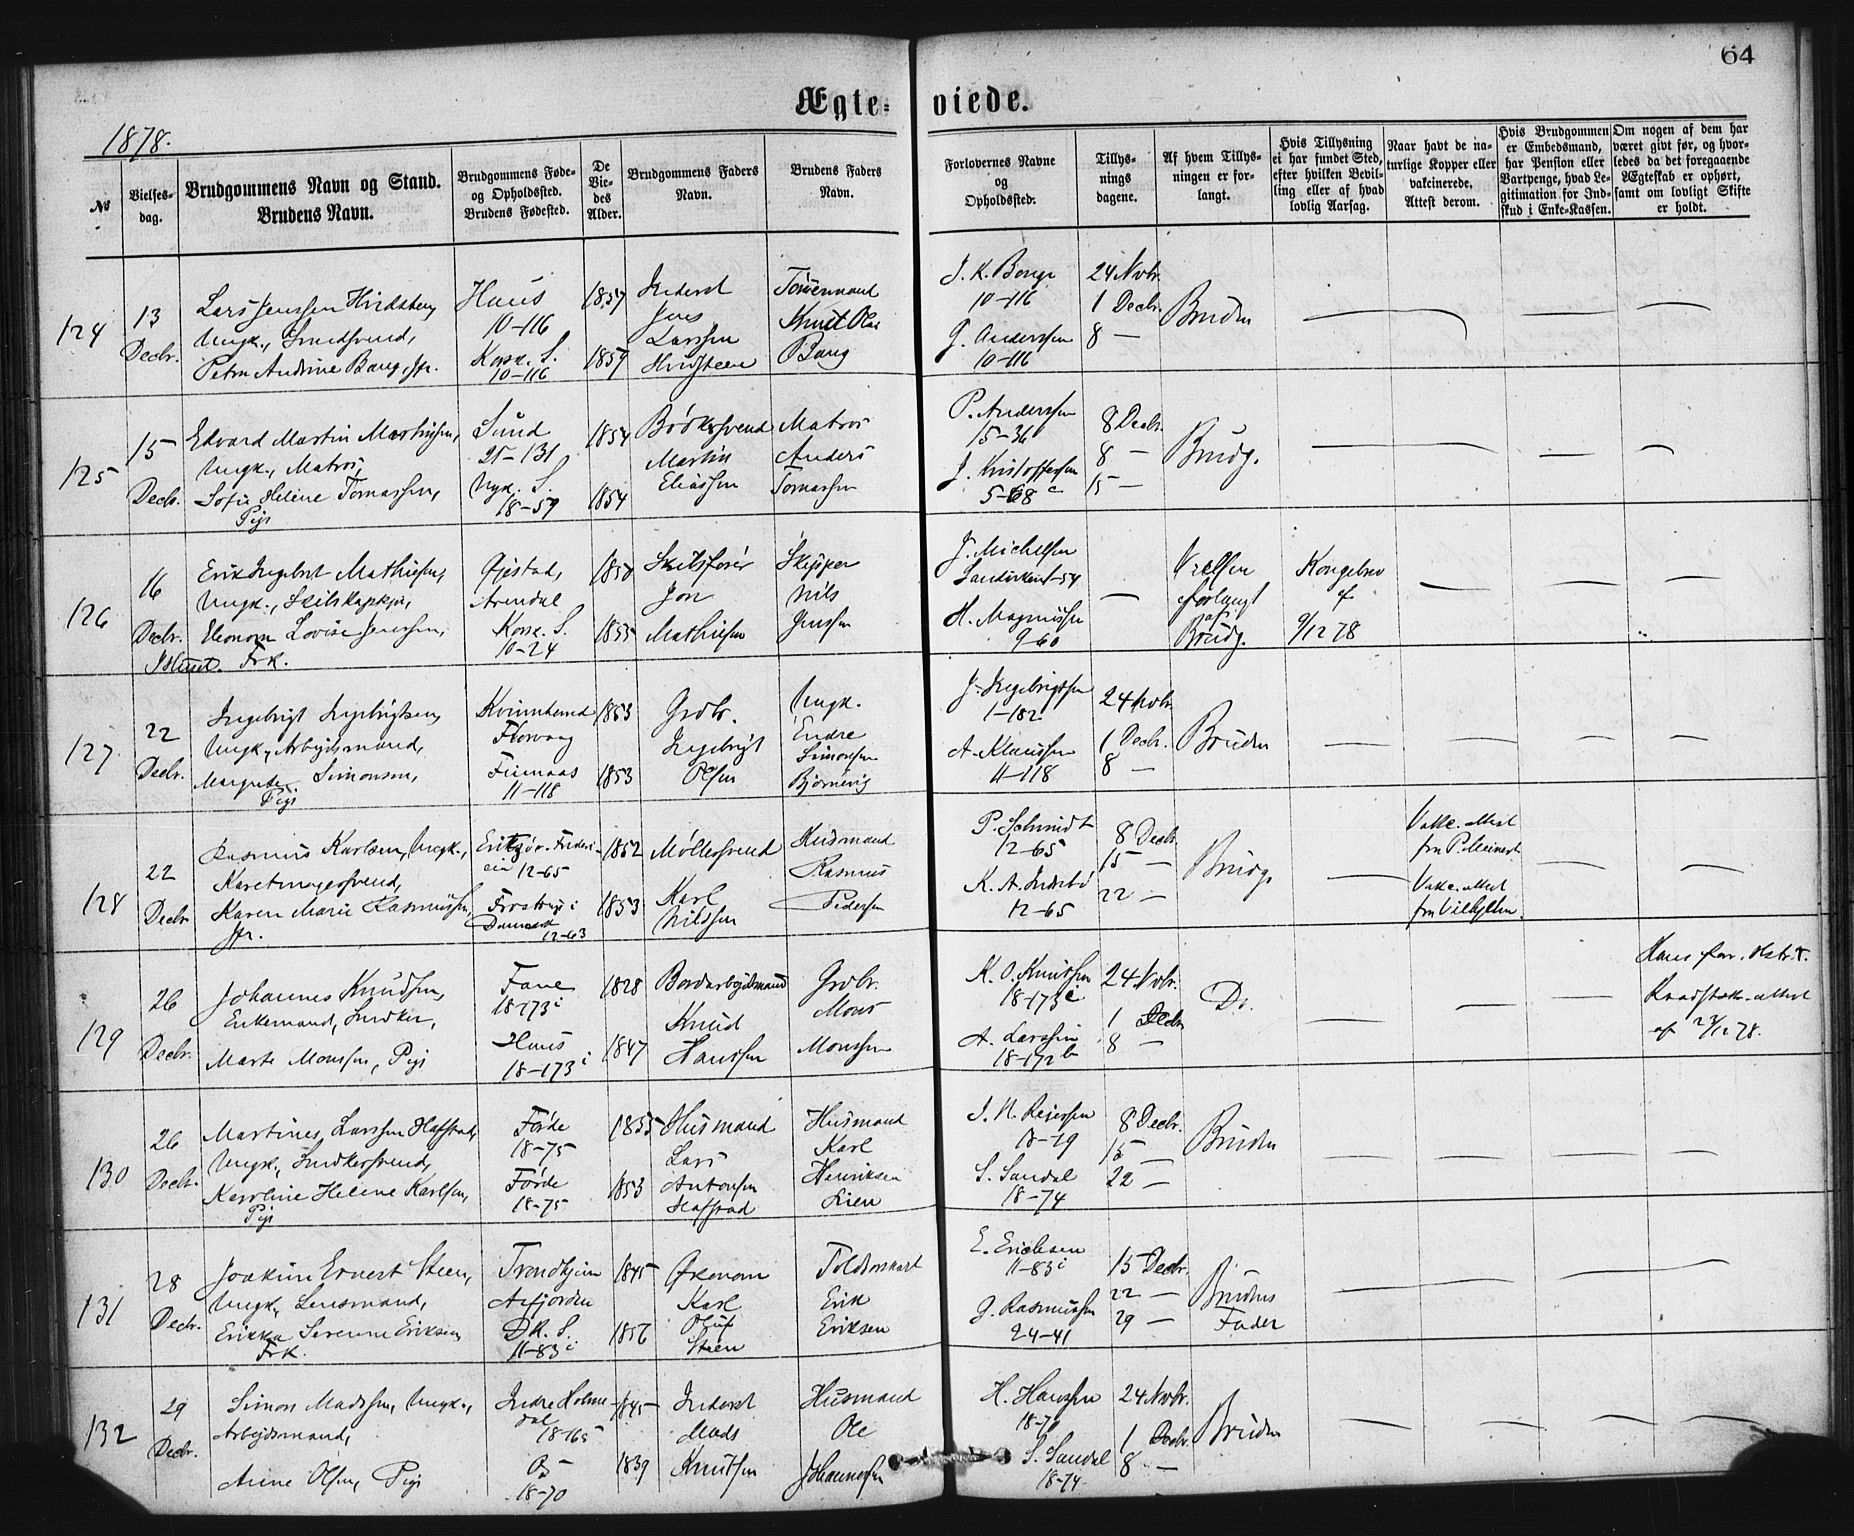 64
Ægte-
viede.
1878.
No
Vielses-
dag.
Brudgommens Navn og Stand.
Brudens Navn.
Brudgommens Føde-
og Opholdssted.
Brudens Fødested.
De
Vie-
des
Alder.
Brudgommens Faders
Navn.
Brudens Faders
Navn.
Forlovernes Navne
og
Opholdssted.
Tillys-
nings
dagene.
Af hvem Tillys-
ningen er for-
langt.
Hvis Tillysning
ei har fundet Sted,
efter hvilken Bevil-
ling eller af hvad
lovlig Aarsag.
Naar havt de na-
turlige Kopper eller
vakcinerede.
Attest derom.
Hvis Brudgommen
er Embedsmand,
har Pension eller
Vartpenge, hvad Le-
gitimation for Ind-
skud i Enke-Kassen.
Om nogen af dem har
været givt før, og hvor-
ledes da det foregaaende
Ægteskab er ophørt,
samt om lovligt Skifte
er holdt.
124
13
Decbr.
Lars Jenssen
Ungk., Smedsvend,
Petra Andrine Bang, Jfr.
Haus
10-116
Korsk. S.
10-116
1857
1859
Inderst
Jens
Larssen
Hvidsteen
Knut Olai
Bang
J. K. Bang
10-116
G. Anderssen
10-116
24 Novbr.
1 Decbr.
8 —
Bruden
125
15
Decbr.
Edvard Martin Martinsen,
Ungk., Matros
Sofie Helene Tomassen,
Pige
Sund
21-131
Nyk. S.
18-59
1854
1854
Bødkersvend
Martin
Eliassen
Matros
Anders
Tomassen
P. Anderssen
15-36
J. Kristoffersen
5-68 c
8 Decbr.
8 —
15 —
Brudg.
126
16
Decbr.
I Huset.
Erik Ingebret Mathiesen,
Ungk., Skibskaptejn,
Eleonora Lovise Jenssen,
Frk.
Øjestad,
Arendal
Korsk. S.
10-24
1850
1855
Skibsfører
Jon
Mathiesen
Skipper
Nils
Jenssen
J. Michelsen
Sandvikens-54
H. Magnussen
9-60
—
Vielsen
forlangt
af
Brudg.
Kongebrev
af
9/12 78
127
22
Decbr.
Ingebrigt Ingebrigtsen,
Ungk., Arbejdsmand,
Margrete Simonsen,
Pige
Kvinnherred
Florvaag
11-118
1853
1853
Grdbr.
Ingebrigt
Olsen
Ungk.
Endre
Simonsen
Bjørnevig
J. Ingebrigtsen
1-182
A. Klaussen
11-118
24 Novbr.
1 Decbr.
8 —
Bruden
128
22
Decbr.
Rasmus Karlsen, Ungk.,
Karetmagersvend,
Karen Marie Rasmussen,
Jfr.
12-65
Danmark
12-63
1852
1853
Møllersvend
Karl
Nilssen
Husmand
Rasmus
Pedersen
P. Schmidt
12-65
12-65
8 Decbr.
15 —
22 —
Brudg.
Vakc. attest
fra P. Meinert
Vakc. attest
fra Vilhjelm.
129
26
Decbr.
Johannes Knudsen,
Enkemand, Snedker,
Marte Monssen, Pige
Fane
18-173 i
Haus
18-173 i
1828
1847
Bordarbejdsmand
Knud
Hanssen
Grdbr.
Mons
Monssen
K. O. Knutssen
18-173 i
A. Larssen
18-172 b
24 Novbr.
1 Decbr.
8 —
Do.
Hans før.
Raadstue-attest
af
130
26
Decbr.
Martines Larssen Hafstad,
Ungk., Snedkersvend,
Karoline Helene Karlsen,
Pige
Førde
18-75
Førde
18-75
1855
1853
Husmand
Lars
Antonsen
Hafstad
Husmand
Karl
Henriksen
Lien
J. N. Reiersen
18-79
S. Sandal
18-74
8 Decbr.
15 —
22 —
Bruden
131
28
Decbr.
Joakim Ernest Steen,
Ungk., Lensmand,
Erikka Severine Eriksen,
Frk.
Trondhjem
Aafjorden
DK. S.
11-83 i
1845
1856
Økonom
Karl
Oluf
Steen
Erik
Eriksen
E. Erichsen
11-83 i
G. Rasmussen
24-41
15 Decbr.
22 —
29 —
Brudens
Fader
132
29
Decbr.
Simon Madssen, Ungk.,
Arbejdsmand,
Anne Olsen, Pige
Indre Holme-
dal
18-165
Os
18-70
1845
1839
Inderst
Mads
Knutsen
Husmand
Ole
Johannesen
H. Hanssen
18-70
S. Sandal
18-74
24 Novbr.
1 Decbr.
8 —
Bruden